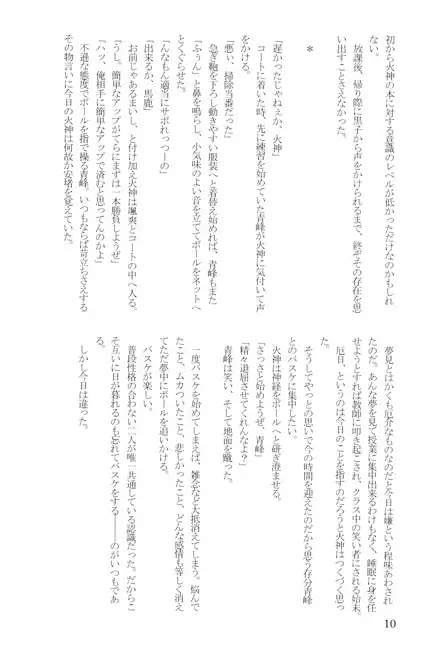 初から火神の本に対する意識のレベルが低かっただけなのかもしれ
ない。
放課後、帰り際に黒子から声をかけられるまで、終ぞその存在を思
い出すことさえなかった。
＊
「遅かったじゃねぇか、火神」
コートに着いた時、先に練習を始めていた青峰が火神に気付いて声
をかける。
「悪ぃ、掃除当番だった」
急ぎ鞄を下ろし動きやすい服装へと着替え始めれば、青峰もまた
「ふぅん」と鼻を鳴らし、小気味のよい音を立ててボールをネットへ
とくぐらせた。
「んなもん適当にサボれっつーの」
「出来るか、馬鹿」
お前じゃあるまいし、と付け加え火神は颯爽とコートの中へ入る。
「うし。簡単なアップがてらにまずは一本勝負しようぜ」
「ハッ、俺相手に簡単なアップで済むと思ってんのかよ」
不遜な態度でボールを指で操る青峰。いつもならば苛立ちさえする
その物言いに今日の火神は何故か安堵を覚えていた。
夢見とはかくも厄介なものなのだと今日は嫌という程味あわされ
たのだ。あんな夢を見て授業に集中出来るわけもなく、睡眠に身を任
せようとすれば教師に叩き起こされ、クラス中の笑い者にされる始末。
厄日、というのは今日のことを指すのだろうと火神はつくづく思っ
た。
そうしてやっとの思いで今の時間を迎えたのだから思う存分青峰
とのバスケに集中したい。
火神は神経をボールへと研ぎ澄ませる。
「さっさと始めようぜ、青峰」
「精々退屈させてくれんなよ？」
青峰は笑い、そして地面を蹴った。
一度バスケを始めてしまえば、雑念など大抵消えてしまう。悩んで
たこと、ムカついたこと、悲しかったこと、どんな感情も等しく消え
てただ夢中にボールを追いかける。
バスケが楽しい。
普段性格の合わない二人が唯一共通している認識だった。だからこ
そ互いに日が暮れるのも忘れてバスケをする――のがいつもであ
る。
しかし今日は違った。
10